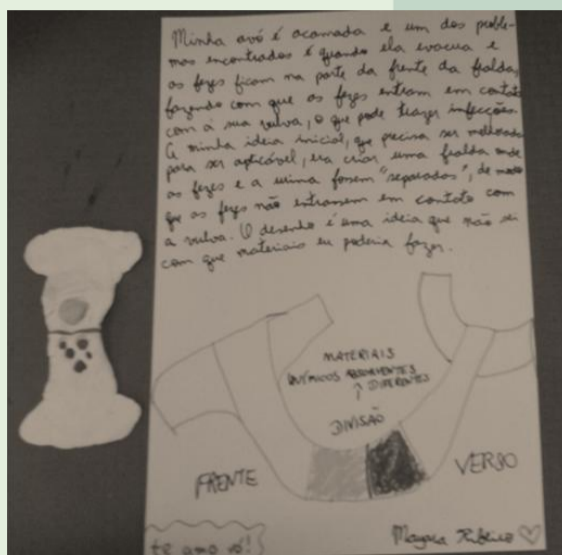 Minha avó é acamada e um dos proble-
mas encontrados é quando ela evacua e
as fezes ficam na parte da frente da fralda,
fazendo com que as fezes entram em contato
com a sua vulva, o que pode trazer infecções.
A minha ideia inicial, que precisa ser melhorada
para ser aplicável, era criar uma fralda onde
as fezes e a urina fossem "separados", de modo
que as fezes não entrassem em contato com
a vulva. O desenho é uma ideia que não sei
com que materiais eu poderia fazer.
MATERIAIS
QUÍMICOS ABSORVENTES
DIFERENTES
DIVISÃO
FRENTE
VERSO
te amo vó!
Mayara Ribeiro